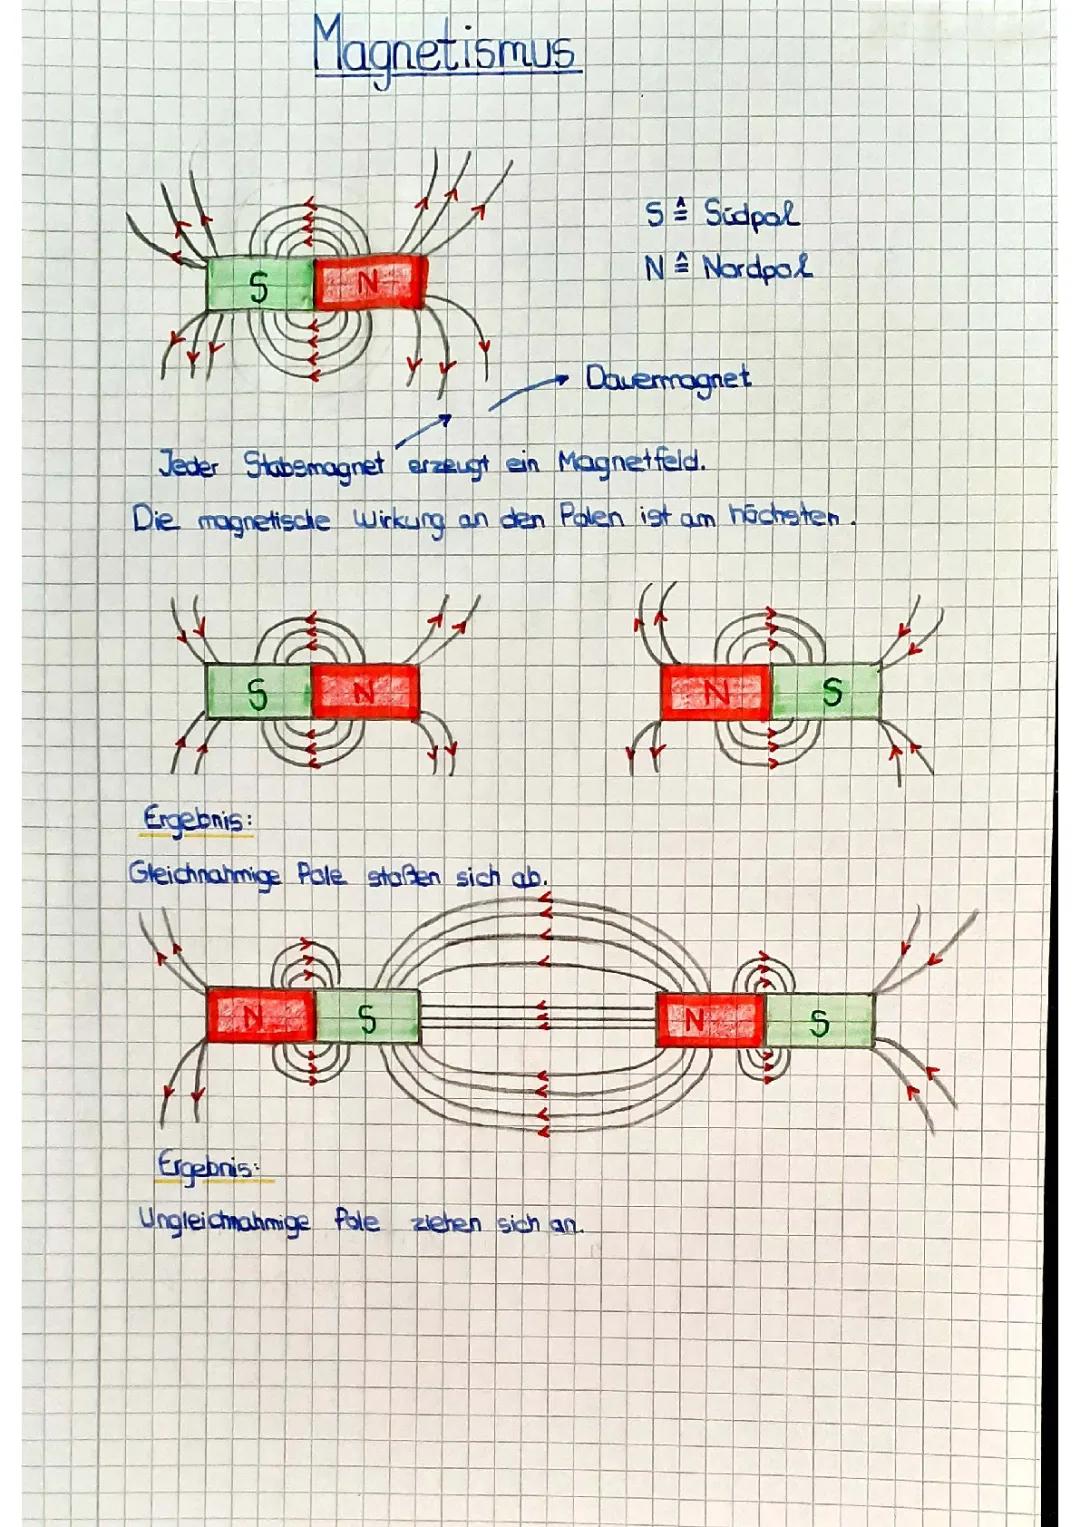 Magnetismus
S N
S ≙ Südpol
N ≙ Nordpol
Dauermagnet
Jeder Stabsmagnet erzeugt ein Magnetfeld.
Die magnetische Wirkung an den Polen ist am höchsten.
S N N S
Ergebnis:
Gleichnahmige Pole stoßen sich ab.
N S N S
Ergebnis:
Ungleichnahmige Pole ziehen sich an.